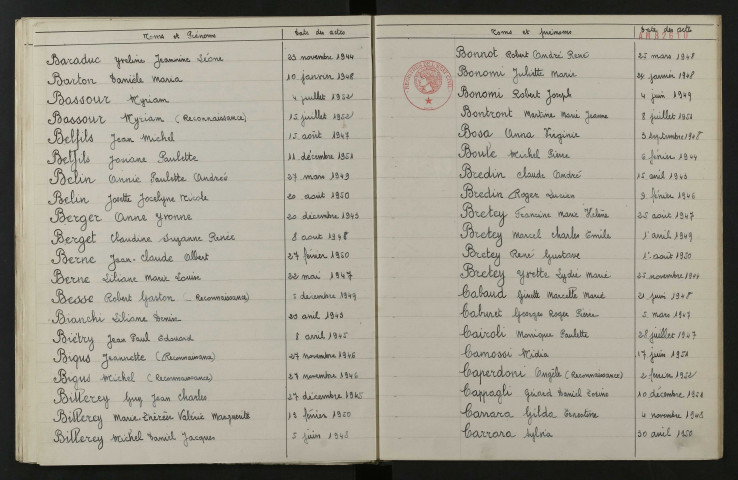 Noms et Prénoms Date des actes
Baraduc Yveline Jeannine Léone 23 novembre 1944
Barton Danièle Maria 10 janvier 1948
Bassour Myriam 4 juillet 1952
Bassour Myriam (Reconnaissance) 15 juillet 1952
Belfils Jean Michel 15 août 1947
Belfils Josiane Paulette 11 décembre 1951
Belin Annie Paulette Andrée 27 mars 1949
Belin Josette Jocelyne Nicole 20 août 1950
Berger Anne Yvonne 20 décembre 1949
Berget Claudine Suzanne Renée 8 août 1948
Berne Jean-Claude Albert 27 février 1950
Berne Liliane Marie Louise 22 mai 1947
Besse Robert Gaston (Reconnaissance) 5 décembre 1949
Bianchi Liliane Denise 20 avril 1945
Biétry Jean Paul Edouard 8 avril 1945
Bigus Jeannette (Reconnaissance) 27 novembre 1946
Bigus Michel (Reconnaissance) 27 novembre 1946
Billerey Guy Jean Charles 27 décembre 1945
Billerey Marie- Valérie Marguerite 19 février 1950
Billerey Michel Daniel Jacques 5 juin 1948
Noms et prénoms Date des actes
Bonnot Robert André René 25 mars 1948
Bonomi Juliette Marie janvier 1948
Bonomi Robert Joseph 4 juin 1949
Bontront Martine Marie Jeanne 8 juillet 1951
Bosa Anna Virginie 3 septembre 1948
Boule Michel Pierre février 1944
Bredin Claude André 15 avril 1943
Bredin Roger Lucien 9 février 1946
Bretey Francine Marie Hélène 25 août 1947
Bretey Marcel Charles Emile 1er avril 1949
Bretey René Gustave 1er août 1950
Bretey Yvette Lydie Marie 25 novembre 1944
Cabaud Ginette Marcelle Marie 21 juin 1948
Caburet Georges Roger Pierre 5 mars 1947
Cairoli Monique Paulette 28 juillet 1947
Camossi Nidia 17 juin 1951
Caperdoni Angèle (Reconnaissance) 2 février 1952
Cappagli Gérard Daniel 10 décembre 1951
Carrara Gilda Ernestine 4 novembre 1948
Carrara Sylvia 30 avril 1950